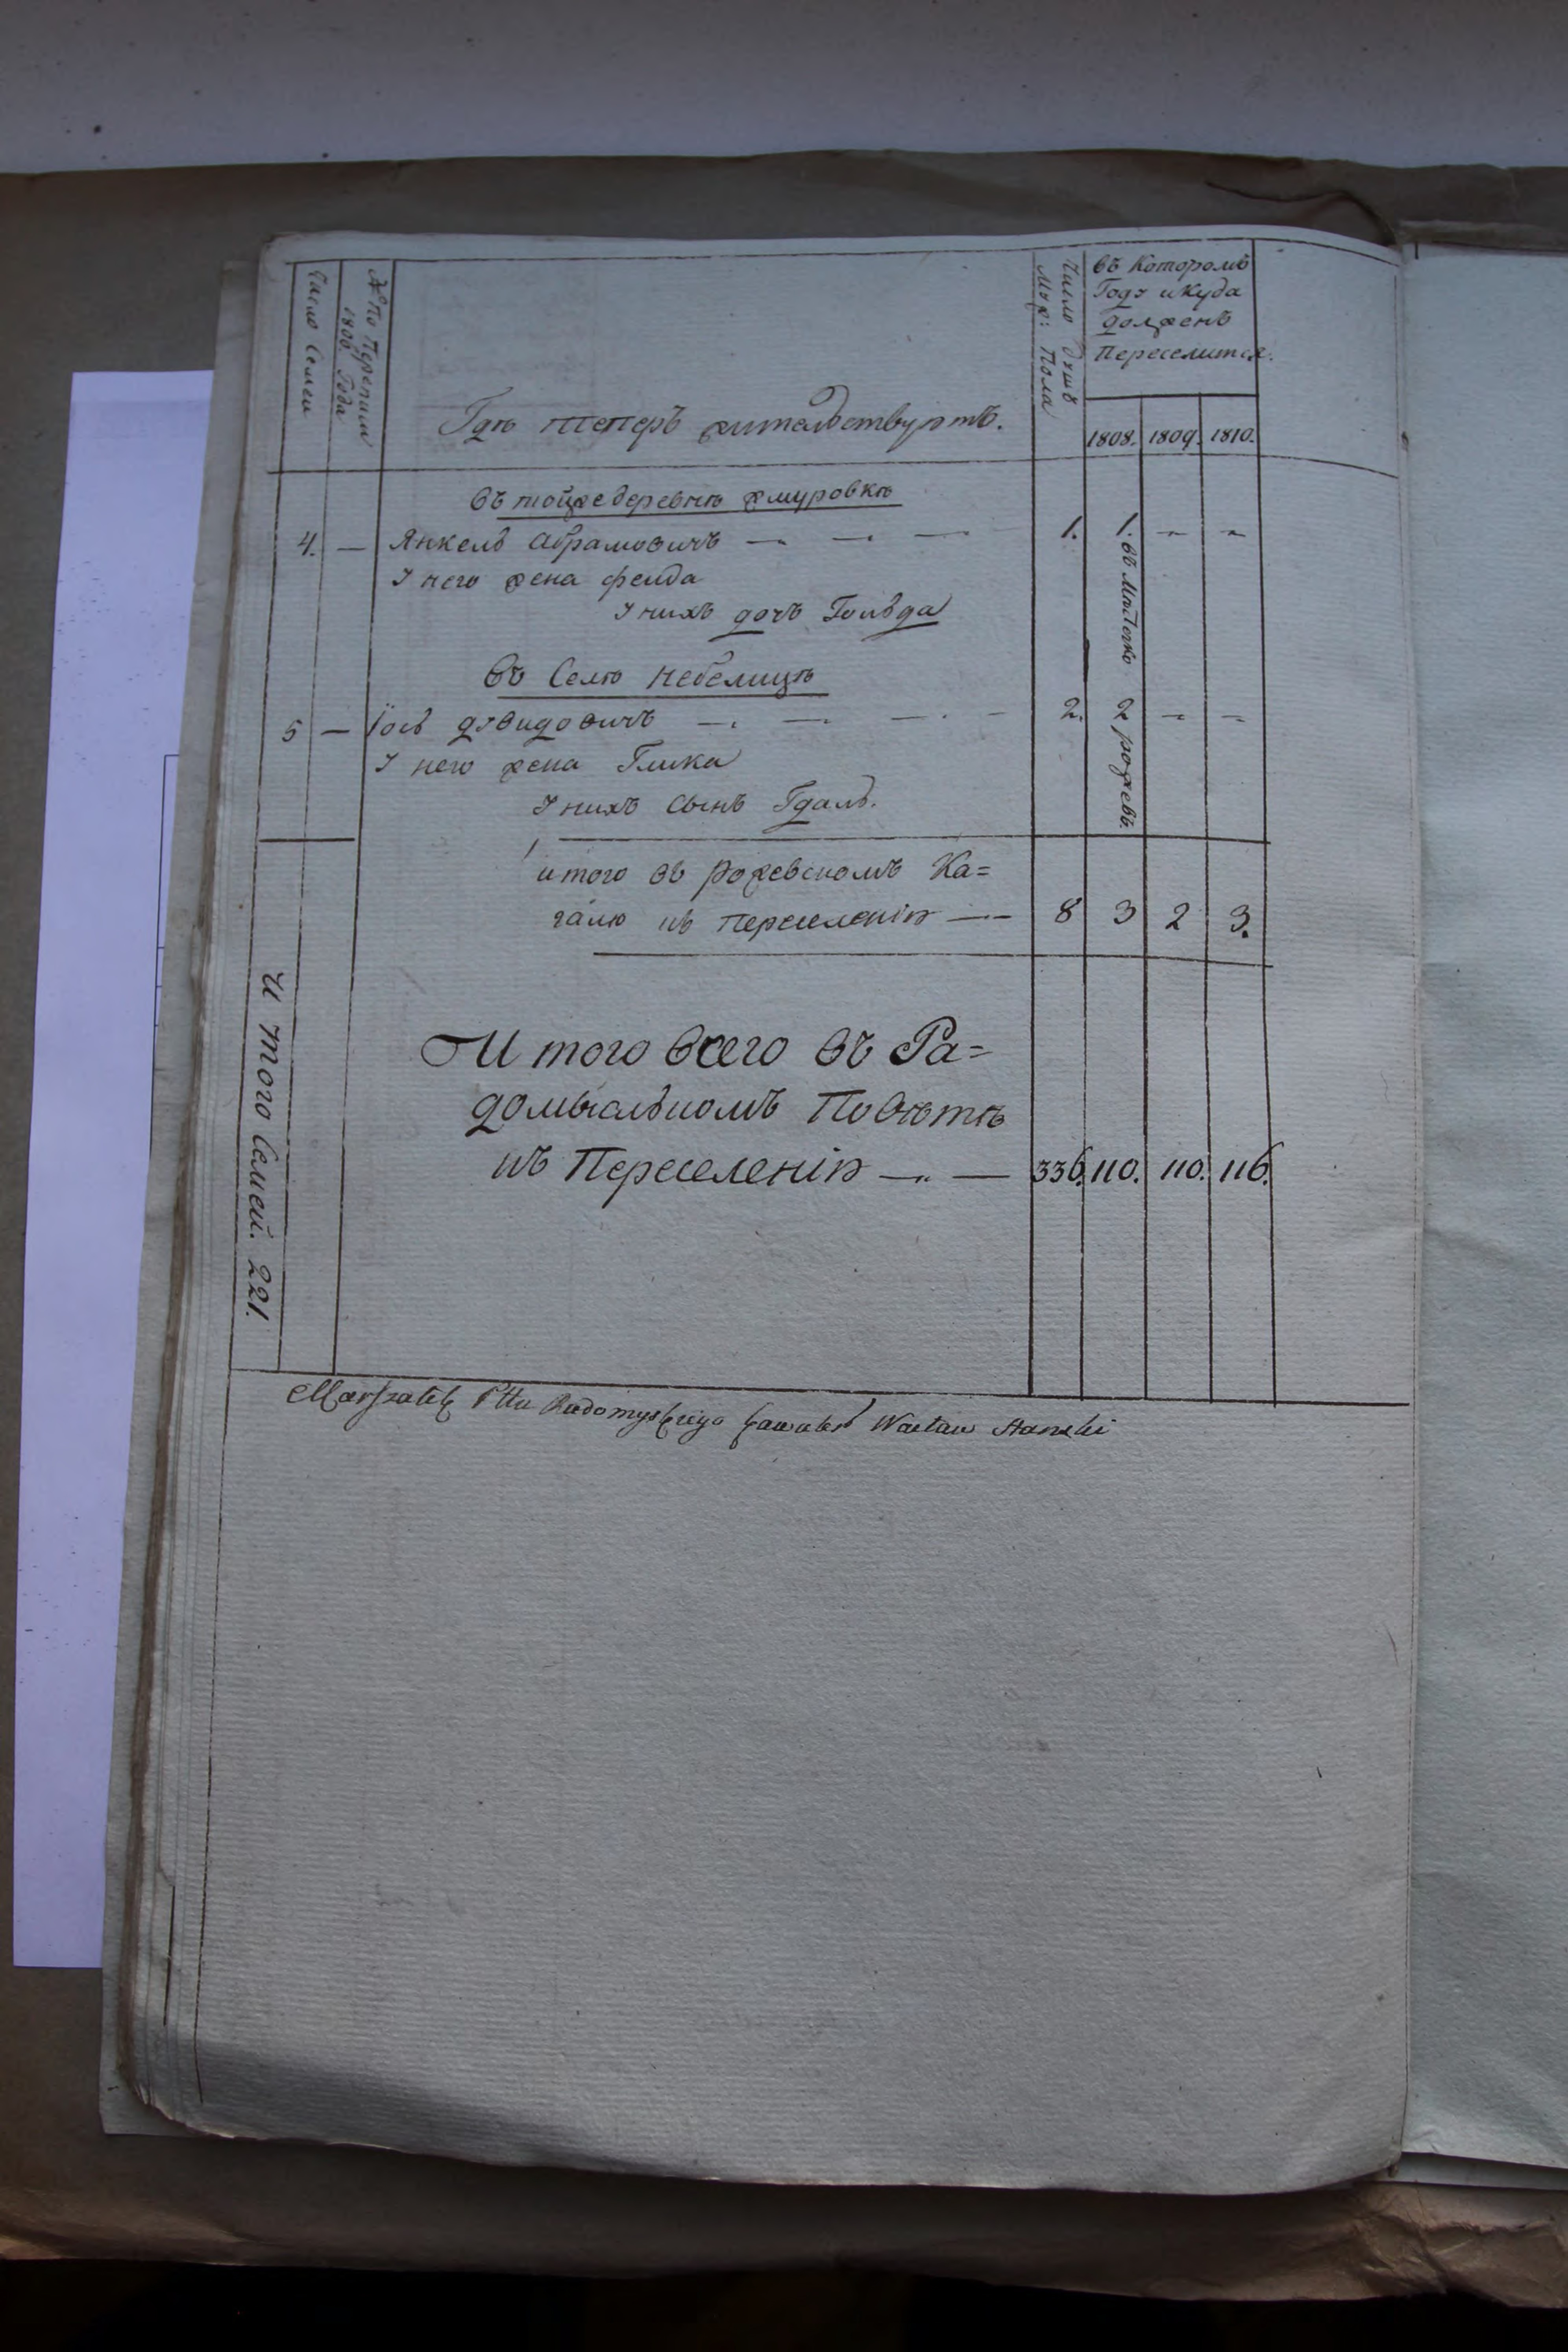 Число Семей
№ по Переписи
1806. Года
Где теперъ жительствуютъ.
Число душъ
Муж: Пола
въ Которомъ
Году и Куда
долженъ
Переселится.
1808. 1809. 1810.
въ тойже деревне жмуровке
4. — Янкель Абрамовичъ — — — 1. 1. въ Местечко — —
У него жена фейда
У нихъ дочь Гольда
въ Селе Небелице
5 — Іось Дувидовичъ — — — — 2. 2 рожевъ. — —
У него жена Гликa
У нихъ Сынъ Гдаль.
итого въ Рожевскомъ Ка=
гале къ Переселенію — 8 3 2 3.
Итого всего въ Ра=
домысльскомъ Повете
къ Переселенію — — 336. 110. 110. 116.
Итого Семей. 221.
Marszałek Pttu Radomyskiego Kawaler Wacław Hanski